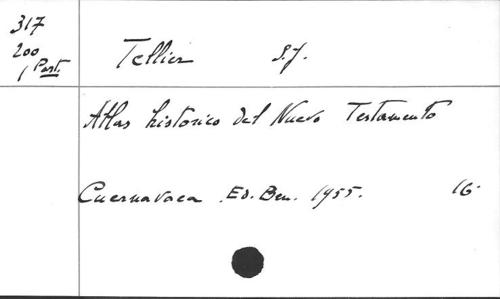 317
200
1 Port.
Tellier S.J.
Atlas historico del Nuevo Testamento
Cuernavaca. Ed. Ben. 1955. 16.